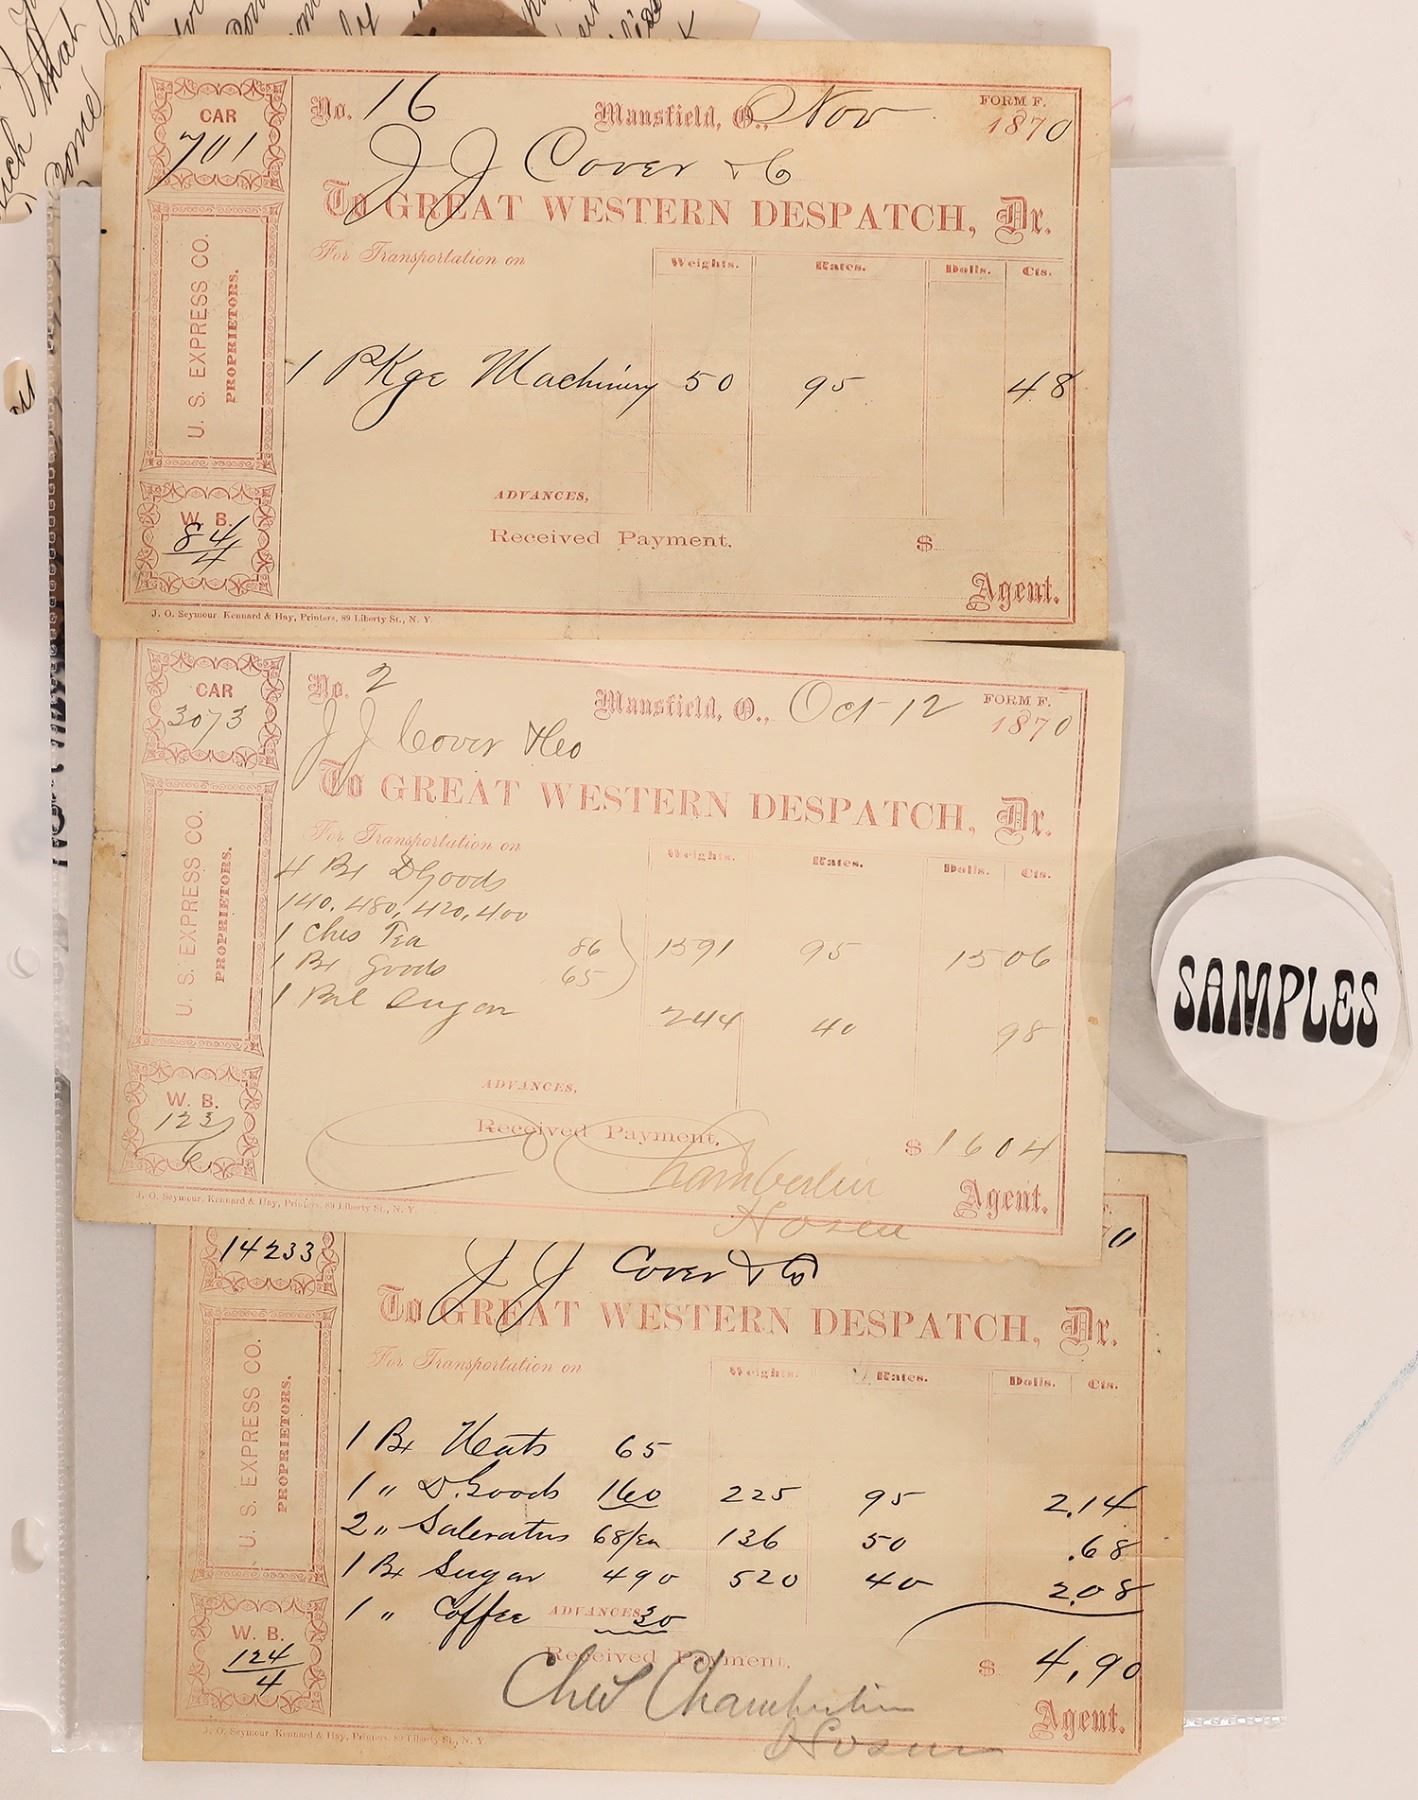 CAR
701
No. 16 Mansfield, O., Nov FORM F. 1870
J J Cover & C
To GREAT WESTERN DESPATCH, Dr.
U. S. EXPRESS CO.
PROPRIETORS.
For Transportation on Weights. Rates. Dolls. Cts.
1 PKge Machinery 50 95 48
ADVANCES,
W. B.
84/4
Received Payment. $
Agent.
J. O. Seymour, Kennard & Hay, Printers, 89 Liberty St., N. Y.
CAR
3073
No. 2 Mansfield, O., Oct 12 FORM F. 1870
J J Cover & Co
To GREAT WESTERN DESPATCH, Dr.
U. S. EXPRESS CO.
PROPRIETORS.
For Transportation on Weights. Rates. Dolls. Cts.
4 Bx DGoods
140, 480, 420, 400
1 Ches Tea 86 1591 95 15 06
1 Bx Goods 65
1 Bbl Sugar 244 40 98
ADVANCES,
W. B.
123/6
Received Payment. $ 16 04
Chamberlin
Agent.
J. O. Seymour, Kennard & Hay, Printers, 89 Liberty St., N. Y.
SAMPLES
14233
J J Cover & Co
To GREAT WESTERN DESPATCH, Dr.
U. S. EXPRESS CO.
PROPRIETORS.
For Transportation on Weights. Rates. Dolls. Cts.
1 Bx 65
1 " D.Goods 160 225 95 2.14
2 " Saleratus 68/ea 136 50 .68
1 Bx Sugar 490 520 40 2.08
1 " Coffee ADVANCES, 30
W. B.
124/4
Received Payment. $ 4,90
Chas Chamberlin
Agent.
J. O. Seymour, Kennard & Hay, Printers, 89 Liberty St., N. Y.